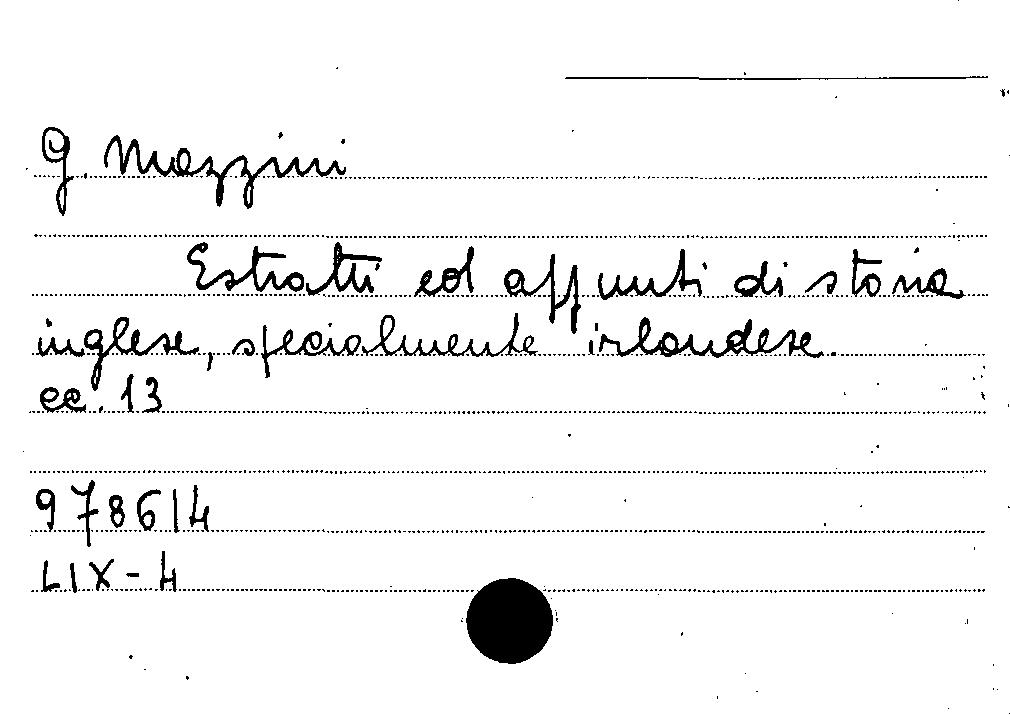 G. Mazzini
Estratti ed appunti di storia
inglese, specialmente irlandese.
cc. 13
97861/4
LIX-4